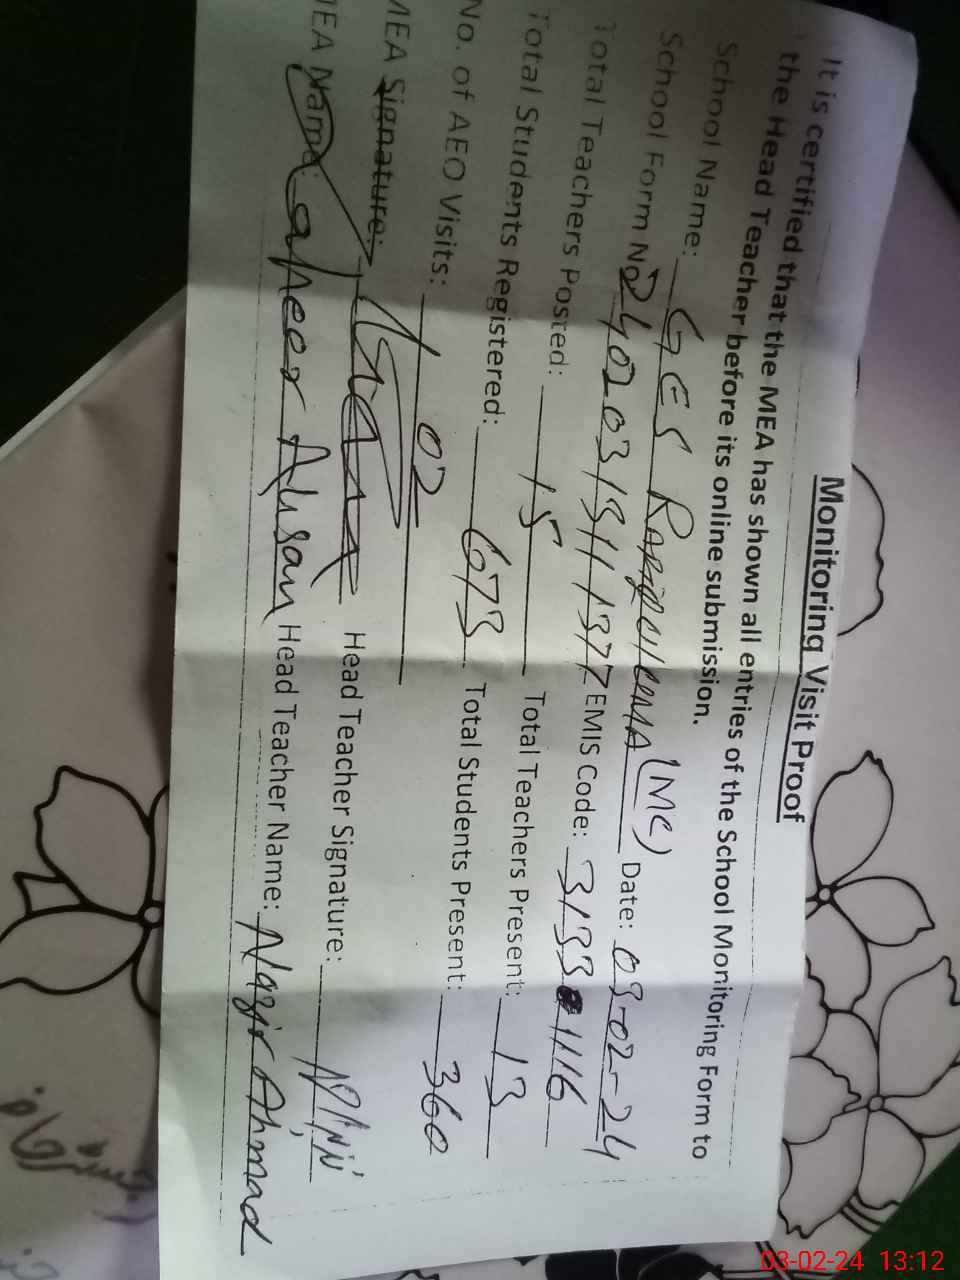 Monitoring Visit Proof
It is certified that the MEA has shown all entries of the School Monitoring Form to
the Head Teacher before its online submission.
School Name: GES (MC) Date: 03-02-24
School Form No. EMIS Code: 3133 1116
Total Teachers Posted: 15 Total Teachers Present: 13
Total Students Registered: 673 Total Students Present: 360
No. of AEO Visits: 02
MEA Signature: Head Teacher Signature:
MEA Name: Zaheer Ahsan Head Teacher Name: Nazir Ahmad
03-02-24 13:12